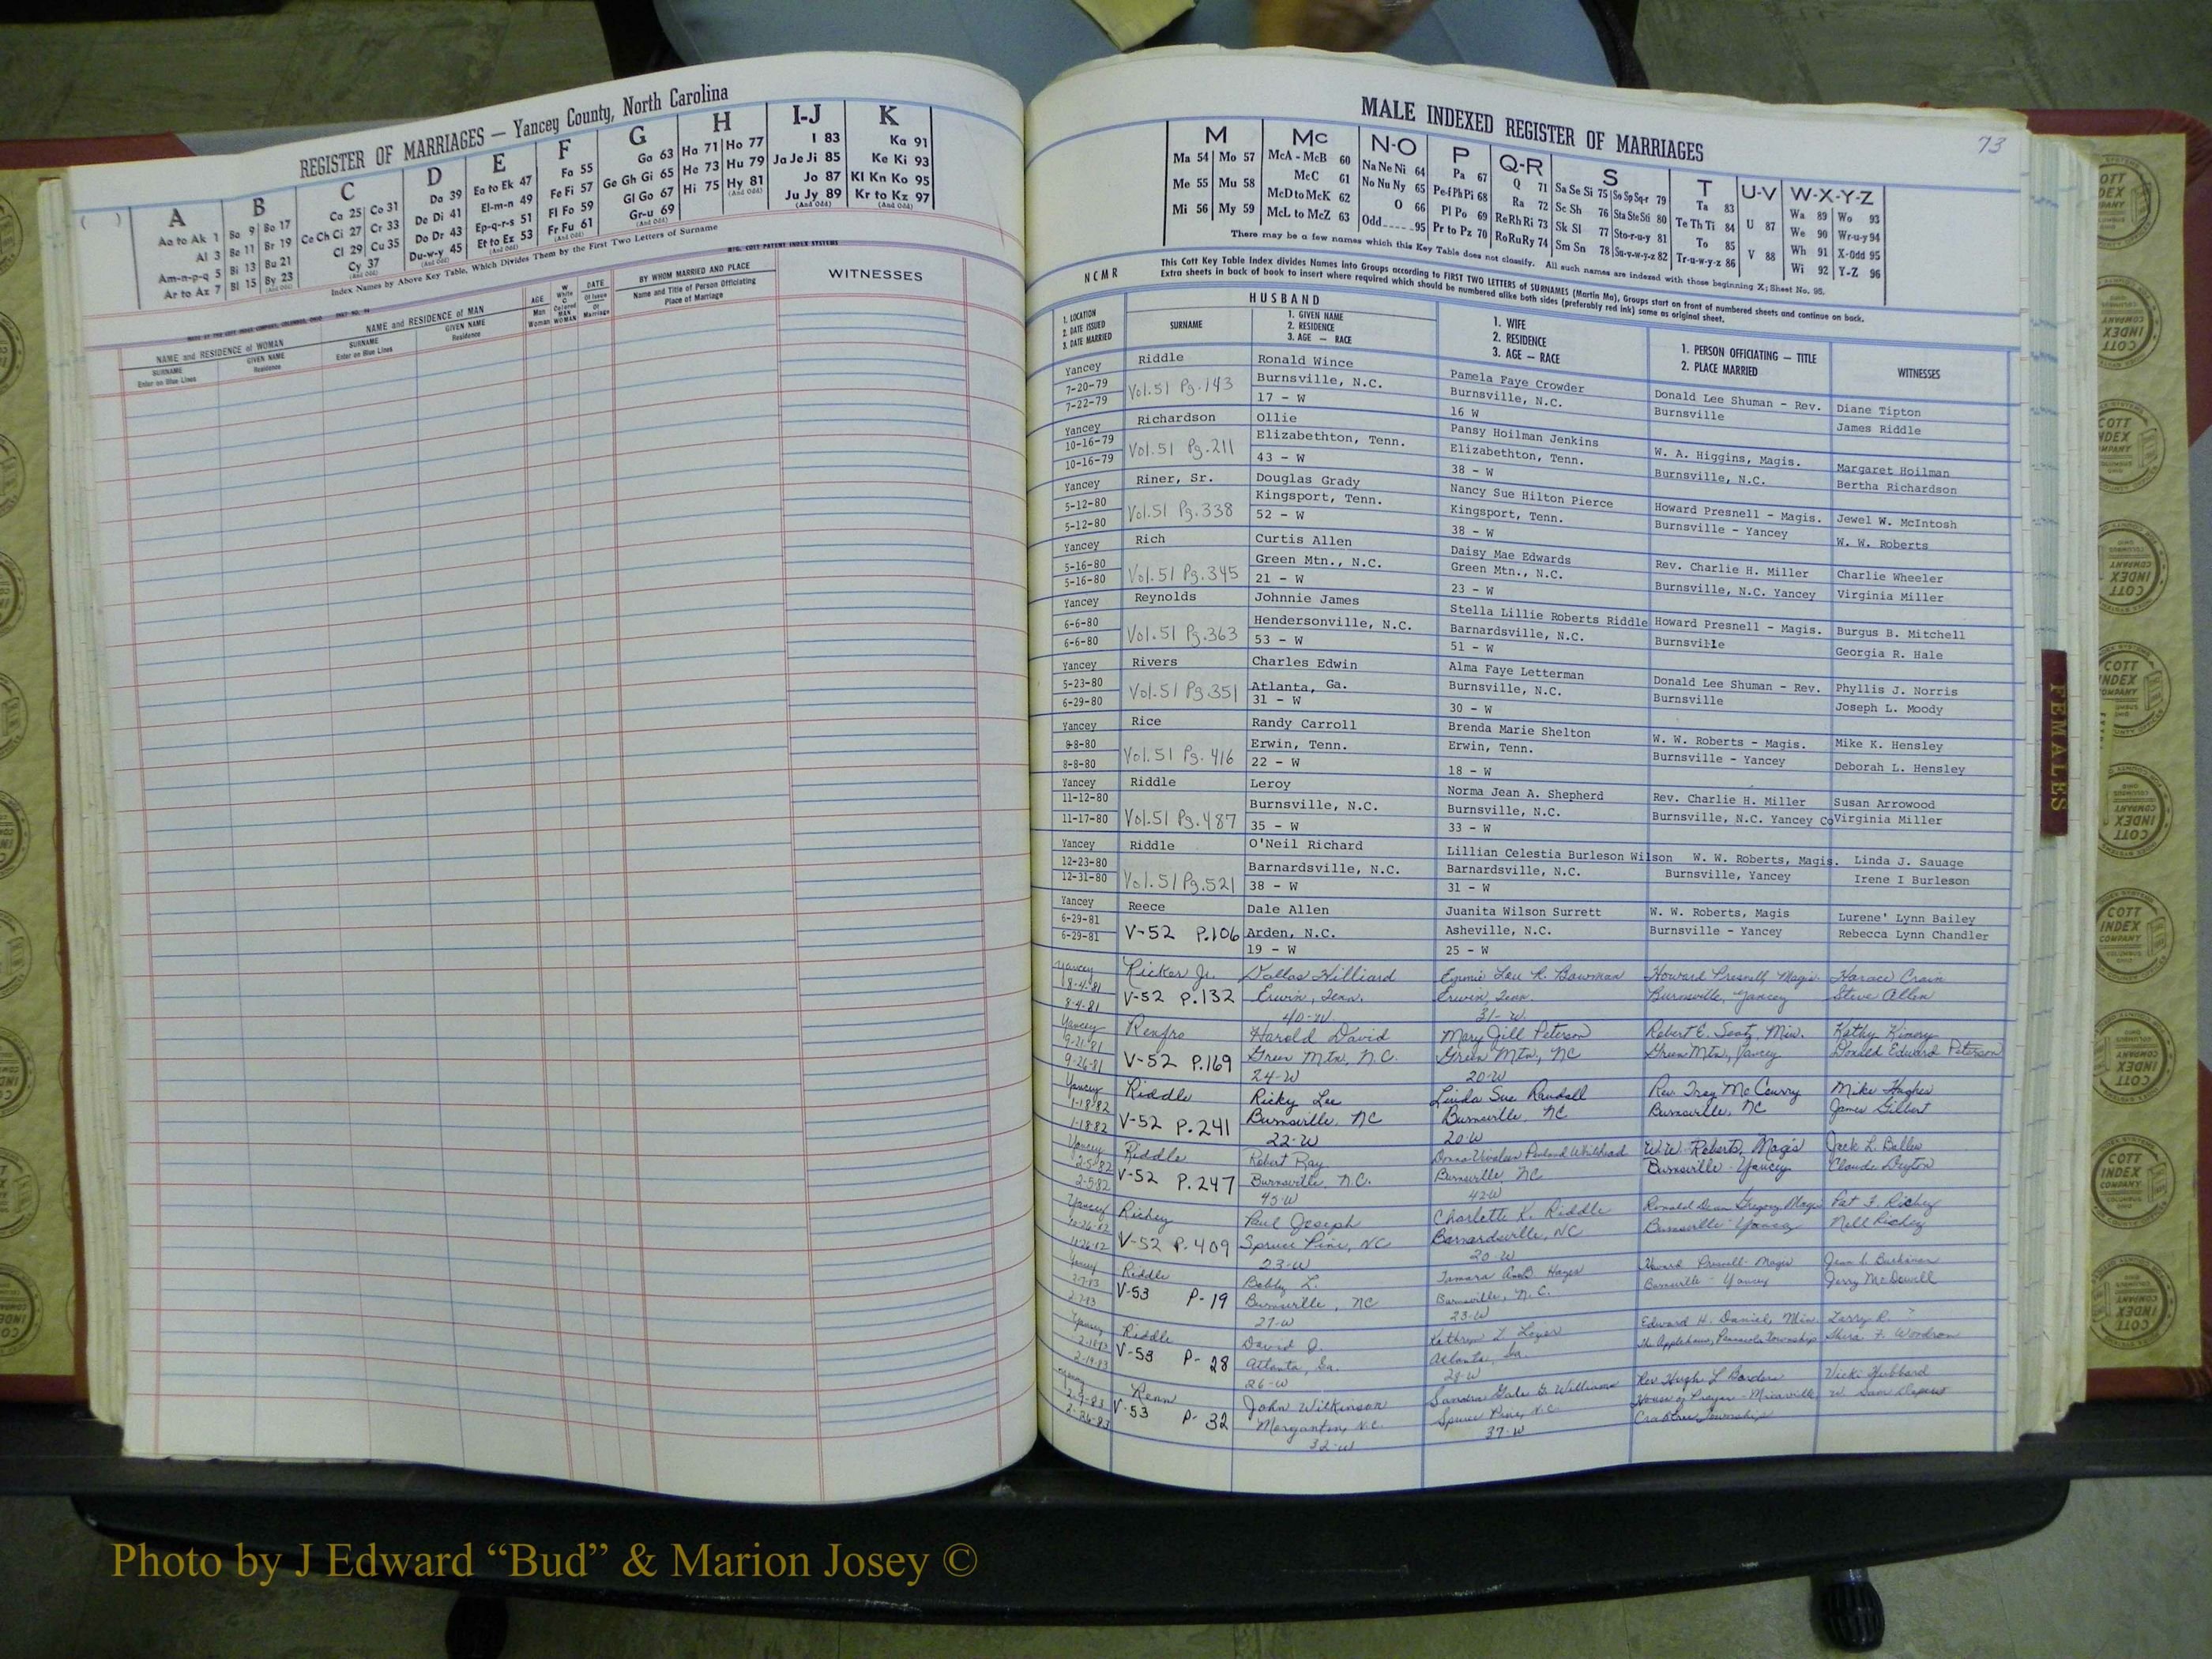 REGISTER OF MARRIAGES — Yancey County, North Carolina
A
Aa to Ak 1
Al 3
Am-n-p-q 5
Ar to Az 7
B
Ba 9 Bo 17
Be 11 Br 19
Bi 13 Bu 21
Bl 15 By 23
(And Odd)
C
Ca 25 Co 31
Ce Ch Ci 27 Cr 33
Cl 29 Cu 35
Cy 37
(And Odd)
D
Da 39
De Di 41
Do Dr 43
Du-w-y 45
(And Odd)
E
Ea to Ek 47
El-m-n 49
Ep-q-r-s 51
Et to Ez 53
(And Odd)
F
Fa 55
Fe Fi 57
Fl Fo 59
Fr Fu 61
(And Odd)
G
Ga 63
Ge Gh Gi 65
Gl Go 67
Gr-u 69
(And Odd)
H
Ha 71 Ho 77
He 73 Hu 79
Hi 75 Hy 81
(And Odd)
I-J
I 83
Ja Je Ji 85
Jo 87
Ju Jy 89
(And Odd)
K
Ka 91
Ke Ki 93
Kl Kn Ko 95
Kr to Kz 97
(And Odd)
Index Names by Above Key Table, Which Divides Them by the First Two Letters of Surname
MFG. COTT PATENT INDEX SYSTEMS
NAME and RESIDENCE of WOMAN
SURNAME
Enter on Blue Lines
GIVEN NAME
Residence
NAME and RESIDENCE of MAN
SURNAME
Enter on Blue Lines
GIVEN NAME
Residence
AGE
Man
Woman
W
White
C
Colored
MAN
WOMAN
DATE
Of Issue
Of
Marriage
BY WHOM MARRIED AND PLACE
Name and Title of Person Officiating
Place of Marriage
WITNESSES
MALE INDEXED REGISTER OF MARRIAGES
73
M
Ma 54 Mo 57
Me 55 Mu 58
Mi 56 My 59
Mc
McA - McB 60
McC 61
McD to McK 62
McL to McZ 63
N-O
Na Ne Ni 64
No Nu Ny 65
O 66
Odd 95
P
Pa 67
Pe-f Ph Pi 68
Pl Po 69
Pr to Pz 70
Q-R
Q 71
Ra 72
Re Rh Ri 73
Ro Ru Ry 74
S
Sa Se Si 75 So Sp Sq-r 79
Sc Sh 76 Sta Ste Sti 80
Sk Sl 77 Sto-r-u-y 81
Sm Sn 78 Su-v-w-y-z 82
T
Ta 83
Te Th Ti 84
To 85
Tr-u-w-y-z 86
U-V
U 87
V 88
W-X-Y-Z
Wa 89 Wo 93
We 90 Wr-u-y 94
Wh 91 X-Odd 95
Wi 92 Y-Z 96
There may be a few names which this Key Table does not classify. All such names are indexed with those beginning X; Sheet No. 95.
NCMR
This Cott Key Table Index divides Names into Groups according to FIRST TWO LETTERS of SURNAMES (Martin Ma), Groups start on front of numbered sheets and continue on back.
Extra sheets in back of book to insert where required which should be numbered alike both sides (preferably red ink) same as original sheet.
1. LOCATION
2. DATE ISSUED
3. DATE MARRIED
HUSBAND
SURNAME
1. GIVEN NAME
2. RESIDENCE
3. AGE — RACE
1. WIFE
2. RESIDENCE
3. AGE — RACE
1. PERSON OFFICIATING — TITLE
2. PLACE MARRIED
WITNESSES
Yancey Riddle Ronald Wince Pamela Faye Crowder Donald Lee Shuman - Rev. Diane Tipton
7-20-79 Vol.51 Pg.143 Burnsville, N.C. Burnsville, N.C. Burnsville James Riddle
7-22-79 17 - W 16 W
Yancey Richardson Ollie Pansy Hoilman Jenkins W. A. Higgins, Magis. Margaret Hoilman
10-16-79 Vol.51 Pg.211 Elizabethton, Tenn. Elizabethton, Tenn. Burnsville, N.C. Bertha Richardson
10-16-79 43 - W 38 - W
Yancey Riner, Sr. Douglas Grady Nancy Sue Hilton Pierce Howard Presnell - Magis. Jewel W. McIntosh
5-12-80 Vol.51 Pg.338 Kingsport, Tenn. Kingsport, Tenn. Burnsville - Yancey W. W. Roberts
5-12-80 52 - W 38 - W
Yancey Rich Curtis Allen Daisy Mae Edwards Rev. Charlie H. Miller Charlie Wheeler
5-16-80 Vol.51 Pg.345 Green Mtn., N.C. Green Mtn., N.C. Burnsville, N.C. Yancey Virginia Miller
5-16-80 21 - W 23 - W
Yancey Reynolds Johnnie James Stella Lillie Roberts Riddle Howard Presnell - Magis. Burgus B. Mitchell
6-6-80 Vol.51 Pg.363 Hendersonville, N.C. Barnardsville, N.C. Burnsville Georgia R. Hale
6-6-80 53 - W 51 - W
Yancey Rivers Charles Edwin Alma Faye Letterman Donald Lee Shuman - Rev. Phyllis J. Norris
5-23-80 Vol.51 Pg.351 Atlanta, Ga. Burnsville, N.C. Burnsville Joseph L. Moody
6-29-80 31 - W 30 - W
Yancey Rice Randy Carroll Brenda Marie Shelton W. W. Roberts - Magis. Mike K. Hensley
8-8-80 Vol.51 Pg.416 Erwin, Tenn. Erwin, Tenn. Burnsville - Yancey Deborah L. Hensley
8-8-80 22 - W 18 - W
Yancey Riddle Leroy Norma Jean A. Shepherd Rev. Charlie H. Miller Susan Arrowood
11-12-80 Vol.51 Pg.487 Burnsville, N.C. Burnsville, N.C. Burnsville, N.C. Yancey Co Virginia Miller
11-17-80 35 - W 33 - W
Yancey Riddle O'Neil Richard Lillian Celestia Burleson Wilson W. W. Roberts, Magis. Linda J. Sauage
12-23-80 Vol.51 Pg.521 Barnardsville, N.C. Barnardsville, N.C. Burnsville, Yancey Irene I Burleson
12-31-80 38 - W 31 - W
Yancey Reece Dale Allen Juanita Wilson Surrett W. W. Roberts, Magis Lurene' Lynn Bailey
6-29-81 V-52 P.106 Arden, N.C. Asheville, N.C. Burnsville - Yancey Rebecca Lynn Chandler
6-29-81 19 - W 25 - W
Yancey Ricker Jr. Dallas Hilliard Emmie Lou R. Bowman Howard Presnell, Magis Horace Crain
8-4-81 V-52 P.132 Erwin, Tenn. Erwin, Tenn. Burnsville, Yancey Steve Allen
8-4-81 40-W 31-W
Yancey Renfro Harold David Mary Jill Peterson Robert E. Min. Kathy
9-21-81 V-52 P.169 Green Mtn, N.C. Green Mtn, NC Green Mtn, Yancey Donald Edward Peterson
9-26-81 24-W 20-W
Yancey Riddle Ricky Lee Linda Sue Randall Rev Troy McCurry Mike Hughes
1-18-82 V-52 P.241 Burnsville, NC Burnsville, NC Burnsville, NC James Gilbert
1-18-82 22-W 20-W
Yancey Riddle Robert Ray Penland Whitehead W.W. Roberts, Magis Jack L. Ballew
2-5-82 V-52 P.247 Burnsville, N.C. Burnsville, NC Burnsville - Yancey Claude Deyton
2-5-82 45-W 42-W
Yancey Richey Paul Joseph Charlette K. Riddle Ronald Dean Gregory Magis Pat F. Richey
V-52 P.409 Spruce Pine, NC Barnardsville, NC Burnsville - Yancey Nell Richey
23-W 20-W
Yancey Riddle Bobby L. Tamara Hayes Howard Presnell - Magis Jean L. Buchanan
2-7-83 V-53 P-19 Burnsville, NC Burnsville, N.C. Burnsville - Yancey Jerry McDowell
2-7-83 27-W 23-W
Yancey Riddle David J. Kathryn L. Edward H. Daniel, Min. Larry R.
V-53 P-28 Atlanta, Ga. Atlanta, Ga. Township F. Woodrow
2-19-83 26-W 28-W
Yancey Renn John Wilkinson Sandra Gale G. Williams Rev Hugh L Borders Vicki Hubbard
2-9-83 V-53 P-32 Morganton, N.C. Spruce Pine, N.C. House of Prayer - Micaville W Sam
2-26-83 32-W 37-W Crabtree Township
FEMALES
COTT
INDEX
COMPANY
Photo by J Edward “Bud” & Marion Josey ©